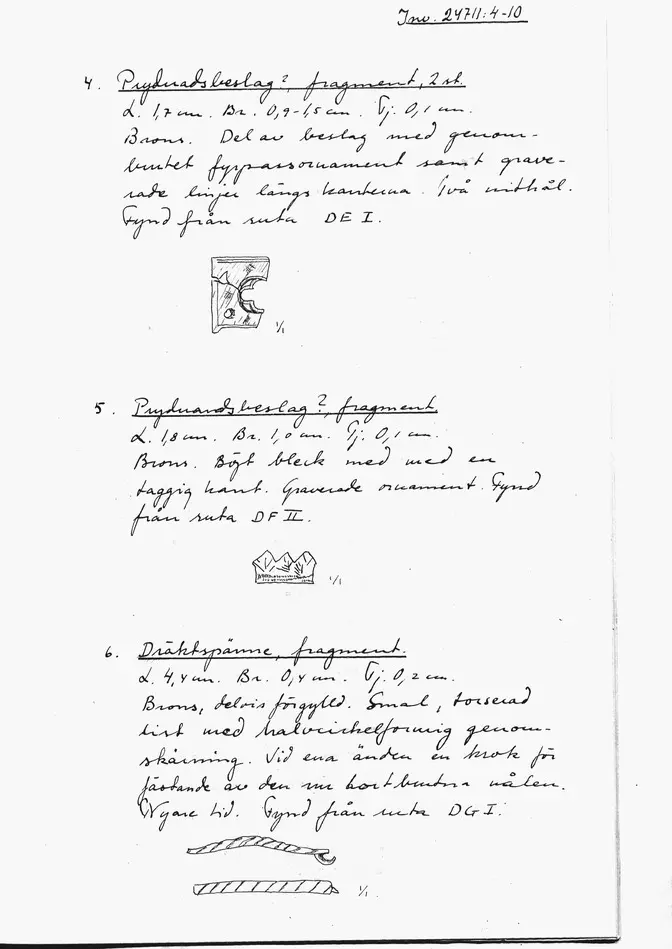 Inv. 24711:4-10
4. Prydnadsbeslag?, fragment, 2 st.
L. 1,7 cm. Br. 0,9-1,5 cm. Tj. 0,1 cm.
Brons. Del av beslag med genom-
brutet fyrpassornament samt grave-
rade linjer längs kanterna. Två nithål.
Fynd från ruta DE I.
1/1
5. Prydnandsbeslag?, fragment
L. 1,8 cm. Br. 1,0 cm. Tj. 0,1 cm.
Brons. Böjt bleck med med en
taggig kant. Graverade ornament. Fynd
från ruta DF II.
1/1
6. Dräktspänne, fragment.
L. 4,4 cm. Br. 0,4 cm. Tj. 0,2 cm.
Brons, delvis förgylld. Smal, torserad
list med halvcirkelformig genom-
skärning. Vid ena änden en krok för
fästande av den nu bortbrutna nålen.
Nyare tid. Fynd från ruta DG I.
1/1